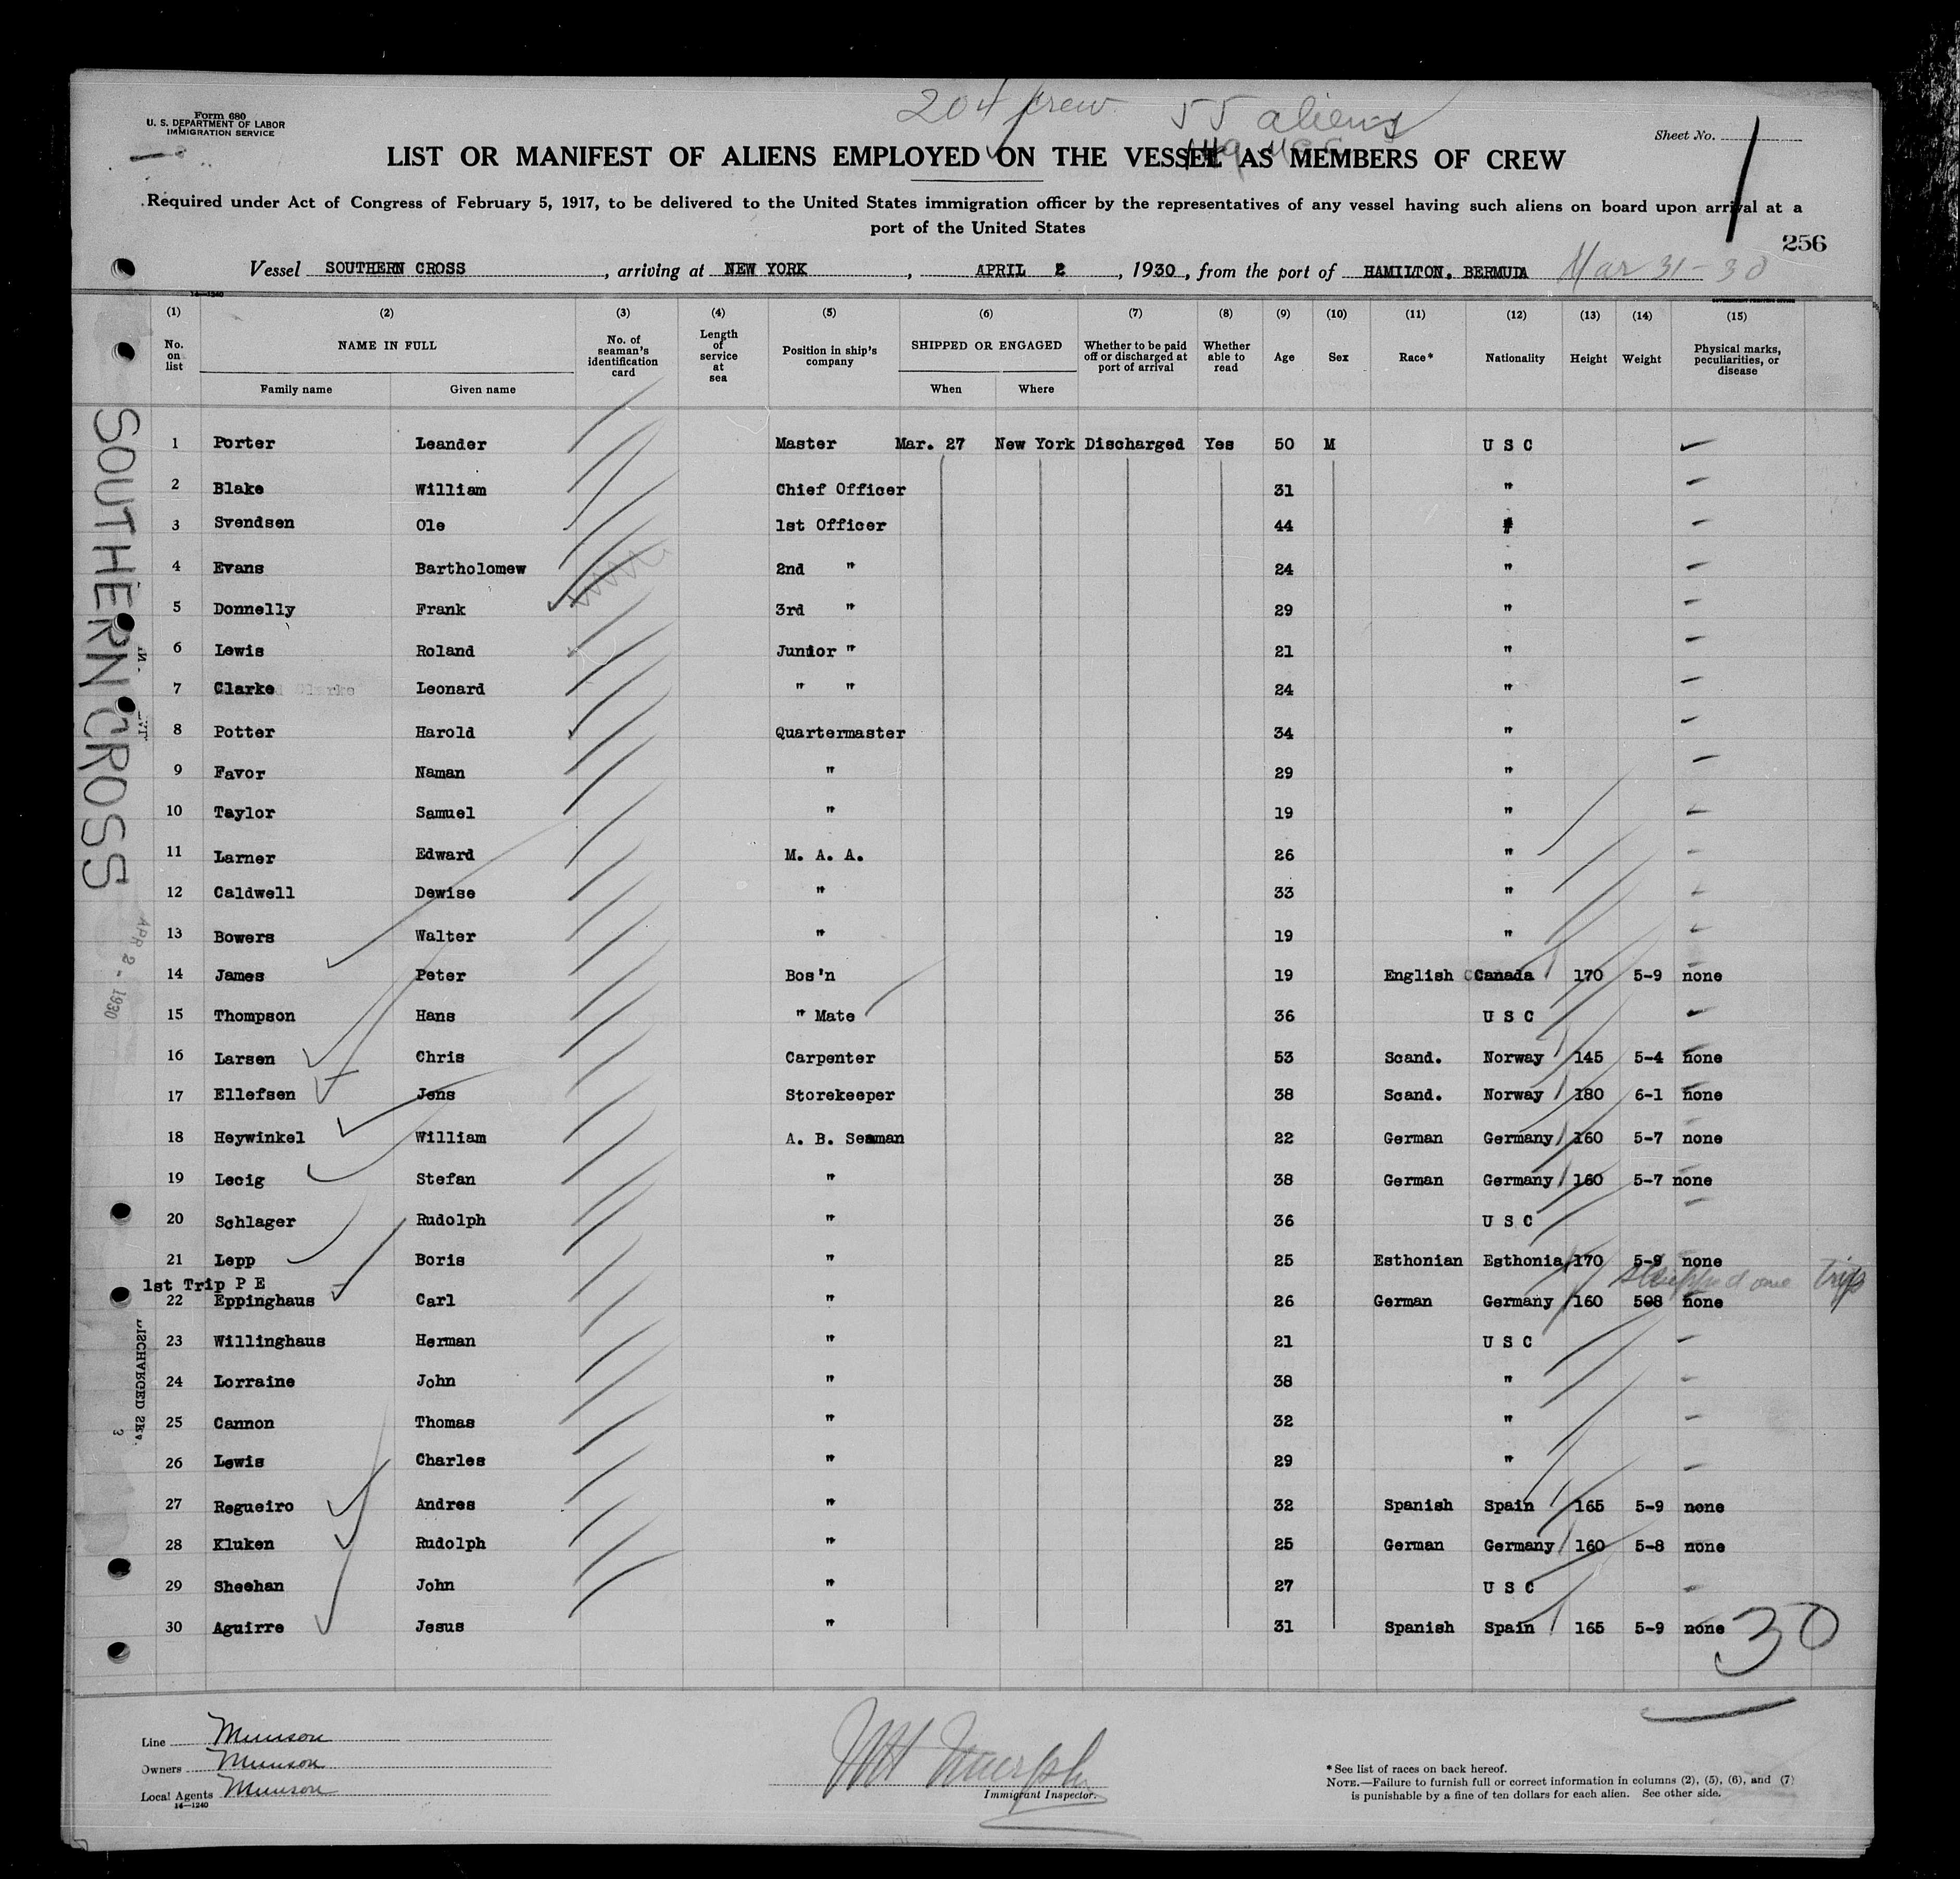 204 crew 55 aliens
Form 680
U. S. DEPARTMENT OF LABOR
IMMIGRATION SERVICE
Sheet No. 1
LIST OR MANIFEST OF ALIENS EMPLOYED ON THE VESSEL AS MEMBERS OF CREW
Required under Act of Congress of February 5, 1917, to be delivered to the United States immigration officer by the representatives of any vessel having such aliens on board upon arrival at a
port of the United States
256
Vessel SOUTHERN CROSS, arriving at NEW YORK, APRIL 2, 1930, from the port of HAMILTON. BERMUDA Mar 31-30
14—1240
GOVERNMENT PRINTING OFFICE
(1) (2) (3) (4) (5) (6) (7) (8) (9) (10) (11) (12) (13) (14) (15)
No. on list NAME IN FULL No. of seaman's identification card Length of service at sea Position in ship's company SHIPPED OR ENGAGED Whether to be paid off or discharged at port of arrival Whether able to read Age Sex Race* Nationality Height Weight Physical marks, peculiarities, or disease
Family name Given name When Where
1 Porter Leander Master Mar. 27 New York Discharged Yes 50 M U S C
2 Blake William Chief Officer 31 "
3 Svendsen Ole 1st Officer 44 "
4 Evans Bartholomew 2nd " 24 "
5 Donnelly Frank 3rd " 29 "
6 Lewis Roland Junior " 21 "
7 Clarke Leonard " " 24 "
8 Potter Harold Quartermaster 34 "
9 Favor Naman " 29 "
10 Taylor Samuel " 19 "
11 Larner Edward M. A. A. 26 "
12 Caldwell Dewise " 33 "
13 Bowers Walter " 19 "
14 James Peter Bos'n 19 English Canada 170 5-9 none
15 Thompson Hans " Mate 36 U S C
16 Larsen Chris Carpenter 53 Scand. Norway 145 5-4 none
17 Ellefsen Jens Storekeeper 38 Scand. Norway 180 6-1 none
18 Heywinkel William A. B. Seaman 22 German Germany 160 5-7 none
19 Lecig Stefan " 38 German Germany 160 5-7 none
20 Schlager Rudolph " 36 U S C
21 Lepp Boris " 25 Esthonian Esthonia 170 5-9 none
1st Trip P E
shipped one trip
22 Eppinghaus Carl " 26 German Germany 160 508 none
23 Willinghaus Herman " 21 U S C
24 Lorraine John " 38 "
25 Cannon Thomas " 32 "
26 Lewis Charles " 29 "
27 Regueiro Andres " 32 Spanish Spain 165 5-9 none
28 Kluken Rudolph " 25 German Germany 160 5-8 none
29 Sheehan John " 27 U S C
30 Aguirre Jesus " 31 Spanish Spain 165 5-9 none
30
SOUTHERN CROSS
APR 2 - 1930
DISCHARGED
3
Line Munson
Owners Munson
Local Agents Munson
14—1240
Immigrant Inspector.
* See list of races on back hereof.
NOTE.—Failure to furnish full or correct information in columns (2), (5), (6), and (7)
is punishable by a fine of ten dollars for each alien. See other side.